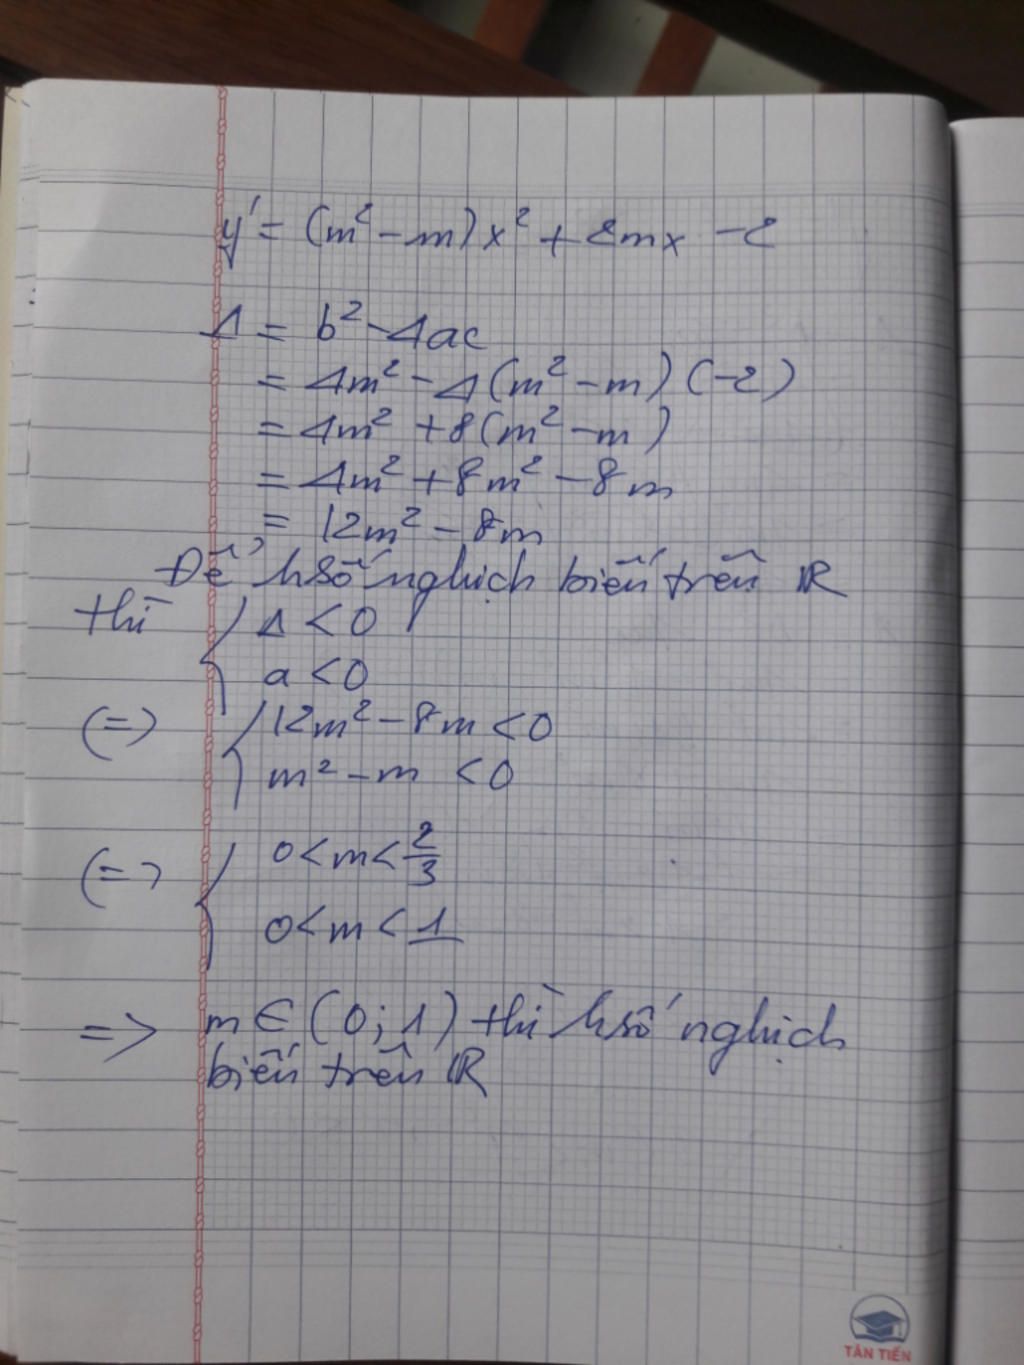 y' = (m² - m)x² + 2mx - 2
Δ = b² - 4ac
= 4m² - 4(m² - m)(-2)
= 4m² + 8(m² - m)
= 4m² + 8m² - 8m
= 12m² - 8m
Để hsố nghịch biến trên ℝ
thì { Δ < 0
a < 0
(=) { 12m² - 8m < 0
m² - m < 0
(=) { 0 < m < 2/3
0 < m < 1
=> m ∈ (0; 1) thì hsố nghịch
biến trên ℝ
TÂN TIẾN